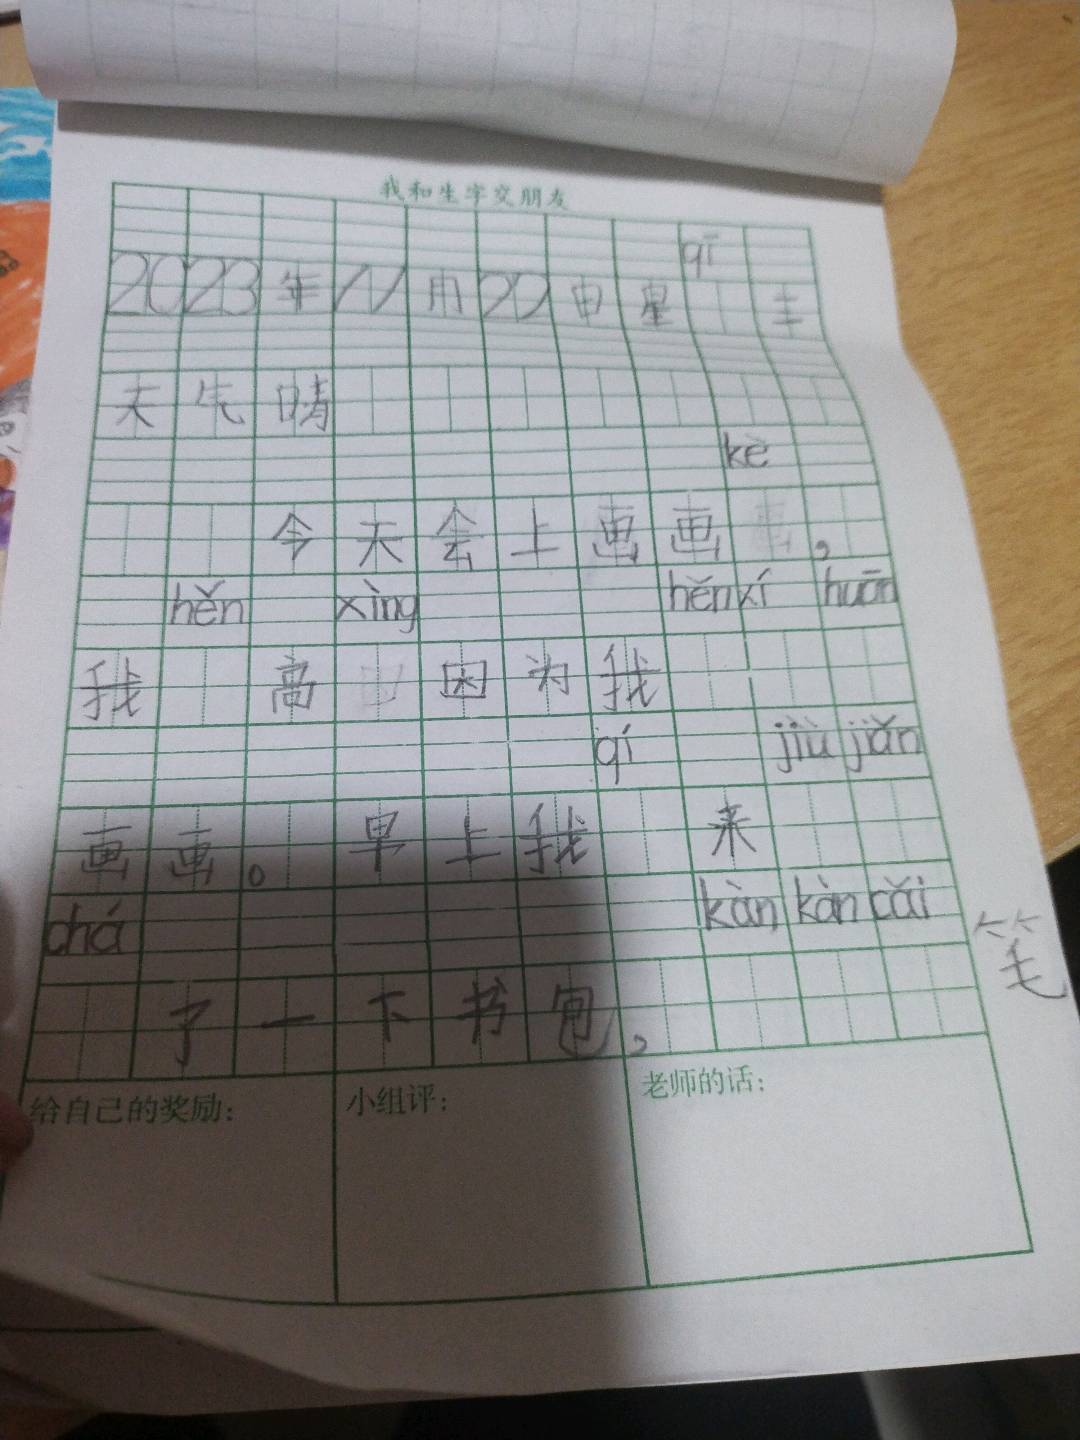 我和生字交朋友
qī
2023年11月22日星 三
天气晴
kè
今天会上画画 ，
hěn xìng hěn xí huān
我 高 因为我
qí jiù jiǎn
画画。早上我 来
chá kàn kàn cǎi
了一下书包，
笔
给自己的奖励：
小组评：
老师的话：